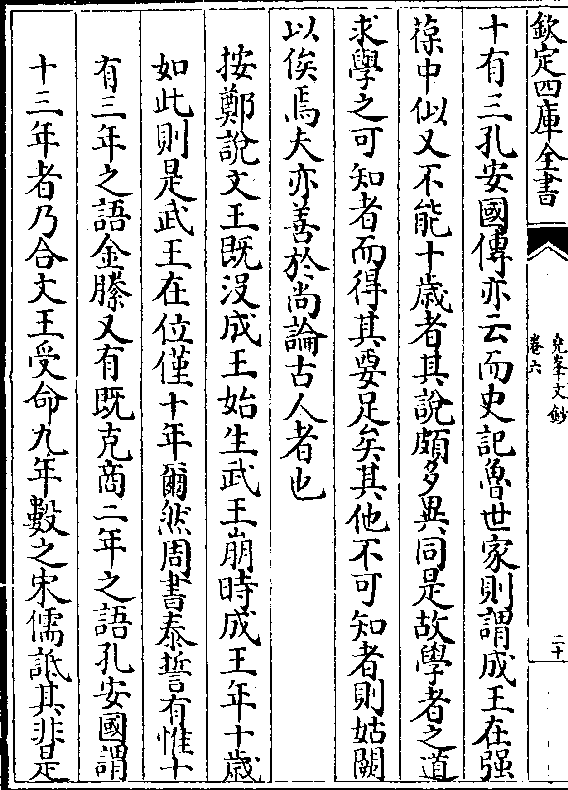 欽定四庫全書
堯峯文鈔
卷六
二十
十有三孔安國傳亦云而史記魯世家則謂成王在强
葆中似又不能十歳者其說頗多異同是故學者之道
求學之可知者而得其要足矣其他不可知者則姑闕
以俟焉夫亦善於尚論古人者也
按鄭說文王既没成王始生武王崩時成王年十歳
如此則是武王在位僅十年爾然周書泰誓有惟十
有三年之語金縢又有既克商二年之語孔安國謂
十三年者乃合文王受命九年數之宋儒詆其非是